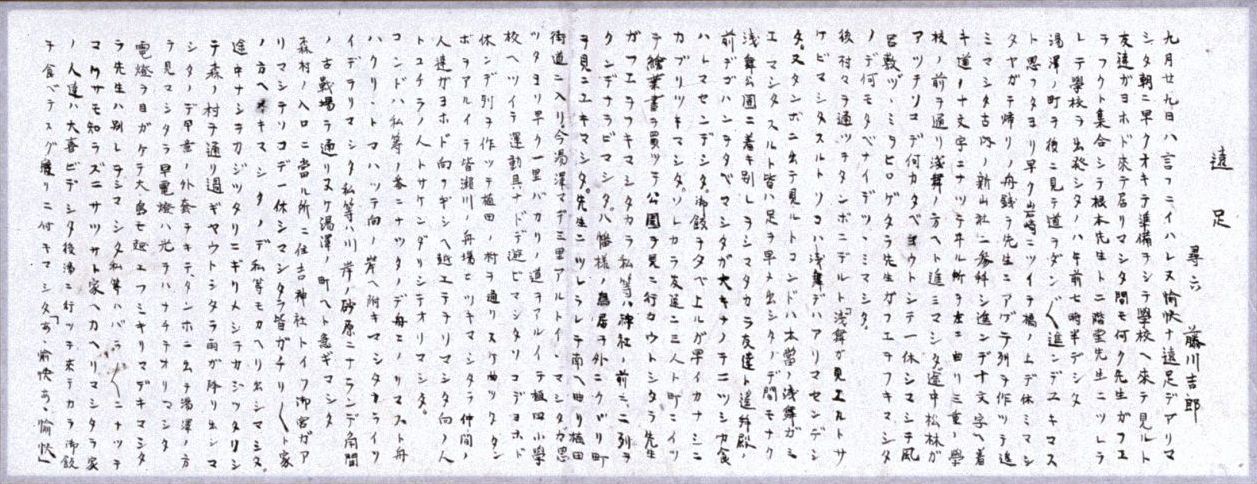 遠足
尋六 藤川吉郎
九月廿九日ハ言フニイハレヌ愉快ナ遠足デアリマ
シタ朝ニ早クオキテ準備ヲシテ學校ヘ來テ見ルト
友達ガヨホド來テ居リマシタ間モ何ク先生ガフエ
ラフクト集合シテ根本先生ト二階堂先生ニツレラ
レテ學校ヲ出発シタノハ午前七時半デシタ
湯澤ノ町ヲ後ニ見テ道ヲダン〱進ンデユキマス
ト思フヨリ早ク山崎ニツイテ橋ノ上デ休ミマシ
タヤガテ帰リノ舟錢ヲ先生ニアゲテ列ヲ作ツテ進
ミマシタ古内ノ新山社ニ参拝シ進ンデ十文字ヘ着
キ道ノ十文字ニナツテヰル所ヲ左ニ曲リ三重ノ學
校ノ前ヲ通リ浅舞ノ方ヘト進ミマシタ途中松林ガ
アツテソコデ何カタベヨウトシテ一休シマシテ風
呂敷ヅヽミヲヒロゲタラ先生ガフエヲフキマシタ
ノデ何モタベナイデツヽミマシタ
後村々ヲ通ツテタンボニデルト「浅舞ガ見エルトサ
ケビマシタスルトソコハ浅舞デハアリマセンデシ
タ。又タンボニ出テ見ルトコンドハ本當ノ浅舞ガミ
エマシタスルト皆ハ足ヲ早メ出シタノデ間モナク
浅舞公園ニ着キ別レヲシマシタカラ友達ト遥拜殿ノ
前デゴハンヲタベマシタガ大キナノヲニツシカ食
ハレマセンデシタ。御飯ヲタベ上ルガ早イカナシニ
カブリツキマシタ。ソレカラ友達ニ三人ト町ニイツ
テ繪葉書ヲ買ツテ公園ヲ見ニ行カウトシタラ先生
ガフエヲフキマシタカラ私等ハ神社ノ前ニ二列ヲ
クンデナラビマシタ。八幡様ノ鳥居ヲ外ニクヾリ町
ヲ見ニユキマシタ。先生ニツレラレテ南ヘ曲リ植田
街道ニ入リ今湯澤マデ三里アルトイヽマシタガ思
ツタヨリ早ク一里バカリノ道ヲアルイテ植田小學
校ヘツイテ運動具ナドデ遊ビマシタソコデヨホド
休ンデ列ヲ作ツテ植田ノ村ヲ通リスケ曲ツタタン
ボヲアルイテ皆瀬川ノ舟場ヒツキマシタラ仲間ノ
人達ガヨホド向フギシヘ越エテヲリマシタ向ノ人
トコチラノ人トサケンダリシテオリマシタ。
コンドハ私等ノ番ニナツタノデ舟エノリマスト舟
ハクリヽトマハツテ向ノ岸ヘ附キマシタカライソ
イデヲリマシタ私等ハ川岸ノ砂原ニナランデ角間
ノ古戦場ヲ通リヌケ湯澤ノ町ヘト急ギマシタ
森村ノ入口ニ當ル所ニ住吉神社トイフ御宮ガア
リマシテソコデ一休シマシタラ皆ガチリ〱ト家
ノ方ヘキマシタノデ私等モカヘリ出シマシタ。
途中ナシヲカジツタリニギリメシヲカジツタリシ
テ森ノ村ヲ通リ過ギヤウトシタラ雨ガ降リ出シマ
シタノデ早速ノ外套ヲキテタンボニ出テ湯澤ノ方
ヲ見マシタラ早電燈ハ光ヲハナチテオリマシタ
電燈ヲ目ガケテ大島モ廻エフミキリマデキマシタ
ラ先生ハ別レヲシマシタ私等ハバラ〱ニナツテ
コワサモ知ラズニサツサト家ヘカヘリマシタラ家
ノ人達ハ大喜ビデシタ後湯ニ行ツテ來テカラ御飯
ヲ食ベテスグ寝リニ付キマシタ「あヽ愉快あヽ愉快」